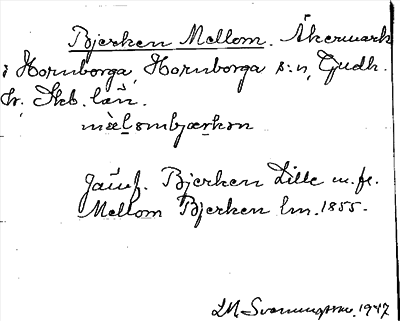 Bjerken Mellom. Åkermark
i Hornborga, Hornborga s:n, Gudh.
hr, Skb. län.
Jämf. Bjerken Lille m. fl.
Mellom Bjerken lm. 1855.
1947